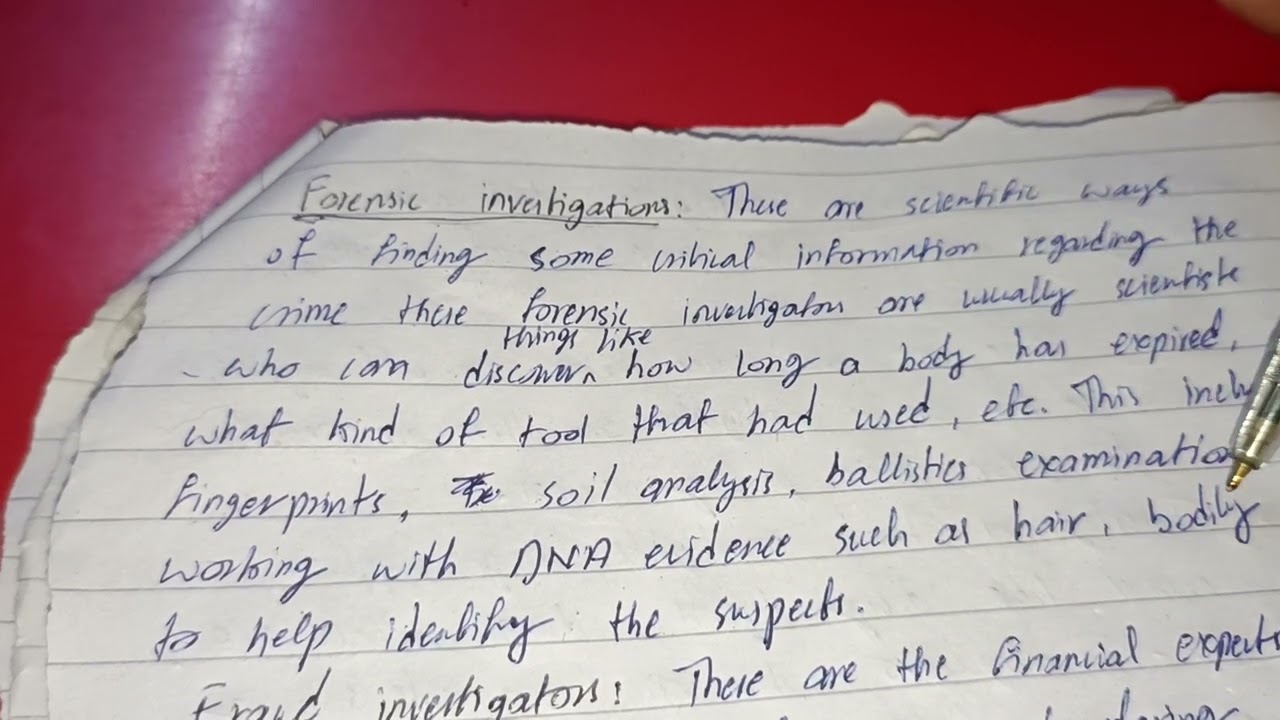 Forensic investigations: These are scientific ways
of finding some critical information regarding the
crime these forensic investigators are usually scientists
things like
who can discover, how long a body has expired,
what kind of tool that had used, etc. This
fingerprints, soil analysis, ballistics examination
working with DNA evidence such as hair, bodily
to help identify the suspects.
Fraud investigators: These are the financial experts